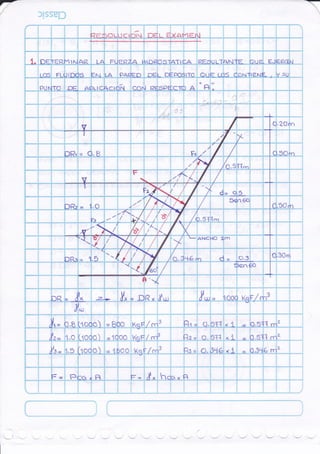 RESOLUCIÓN DEL EXAMEN
1. DETERMINAR LA FUERZA HIDROSTATICA RESULTANTE QUE EJERCEN
LOS FLUIDOS EN LA PARED DEL DEPOSITO QUE LOS CONTIENE, Y SU
PUNTO DE APLICACIÓN CON RESPECTO A "A".
0.20m
DR1 = 0.8
F1
0.50m
0.577m
F
F2
d = 0.5
Sen 60
DR2 = 1.0
0.50m
F3
0.577m
ANCHO 1m
DR3 = 1.5
0.346m
d = 0.3
Sen 60
0.30m
60°
A
DR = γx
γw
γx = DR x γw
γw = 1000 kgF/m³
γ1 = 0.8 (1000) = 800 kgF/m³
A1 = 0.577 x 1 = 0.577 m²
γ2 = 1.0 (1000) = 1000 kgF/m³
A2 = 0.577 x 1 = 0.577 m²
γ3 = 1.5 (1000) = 1500 kgF/m³
A3 = 0.346 x 1 = 0.346 m²
F = PCG x A
F = γx hCG x A